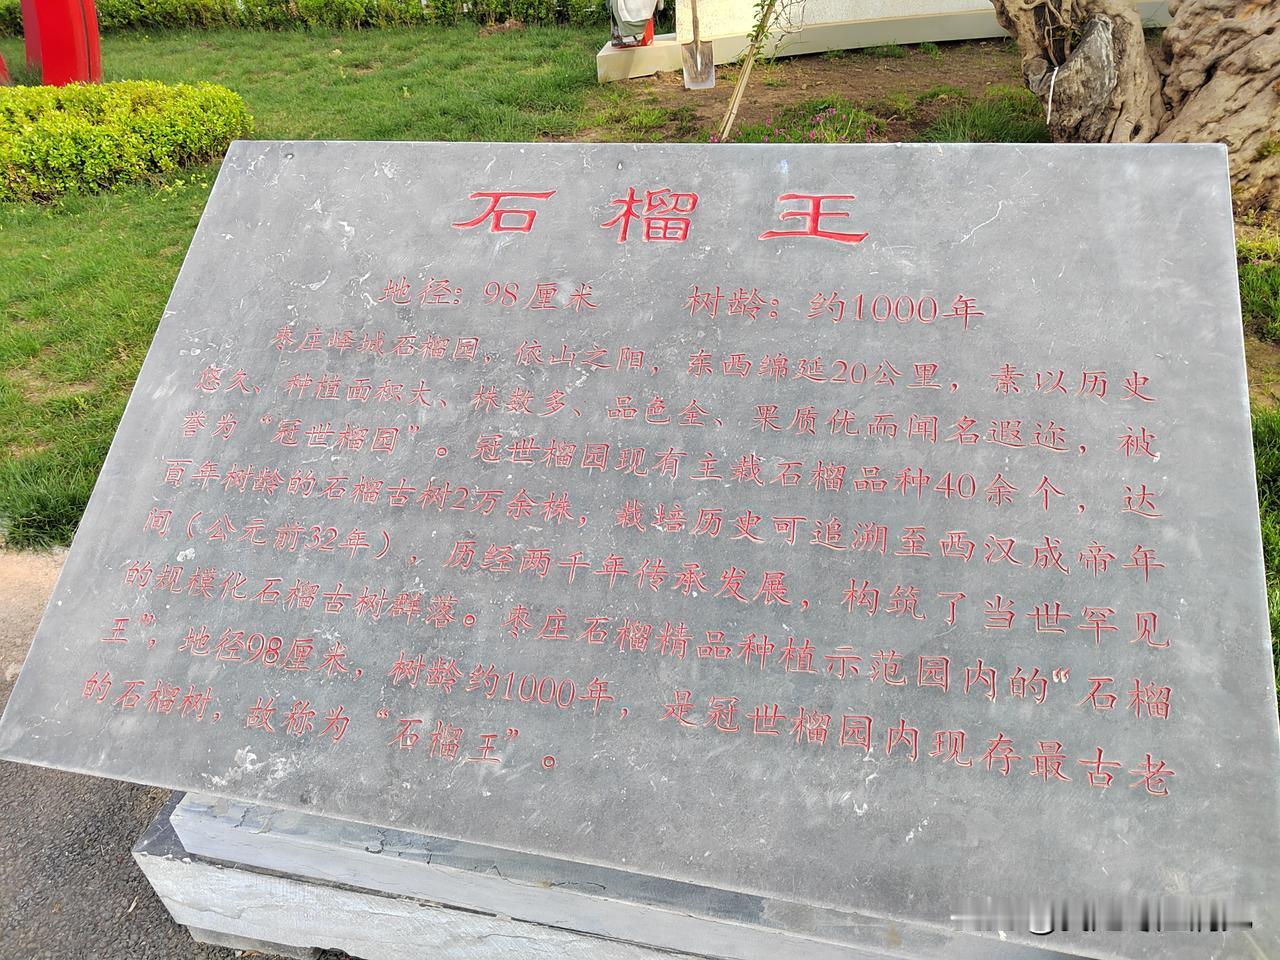 石榴王
地径：98厘米 树龄：约1000年
枣庄峄城石榴园，依山之阳，东西绵延20公里，素以历史
悠久、种植面积大、株数多、品色全、果质优而闻名遐迩，被
誉为“冠世榴园”。冠世榴园现有主栽石榴品种40余个，达
百年树龄的石榴古树2万余株，栽培历史可追溯至西汉成帝年
间（公元前32年），历经两千年传承发展，构筑了当世罕见
的规模化石榴古树群落。枣庄石榴精品种植示范园内的“石榴
王”，地径98厘米，树龄约1000年，是冠世榴园内现存最古老
的石榴树，故称为“石榴王”。